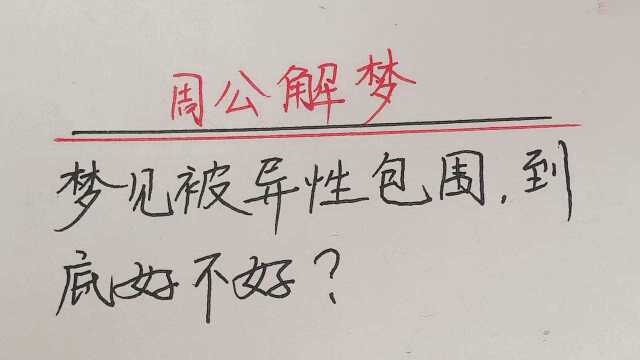 周公解梦
梦见被异性包围,到
底好不好?